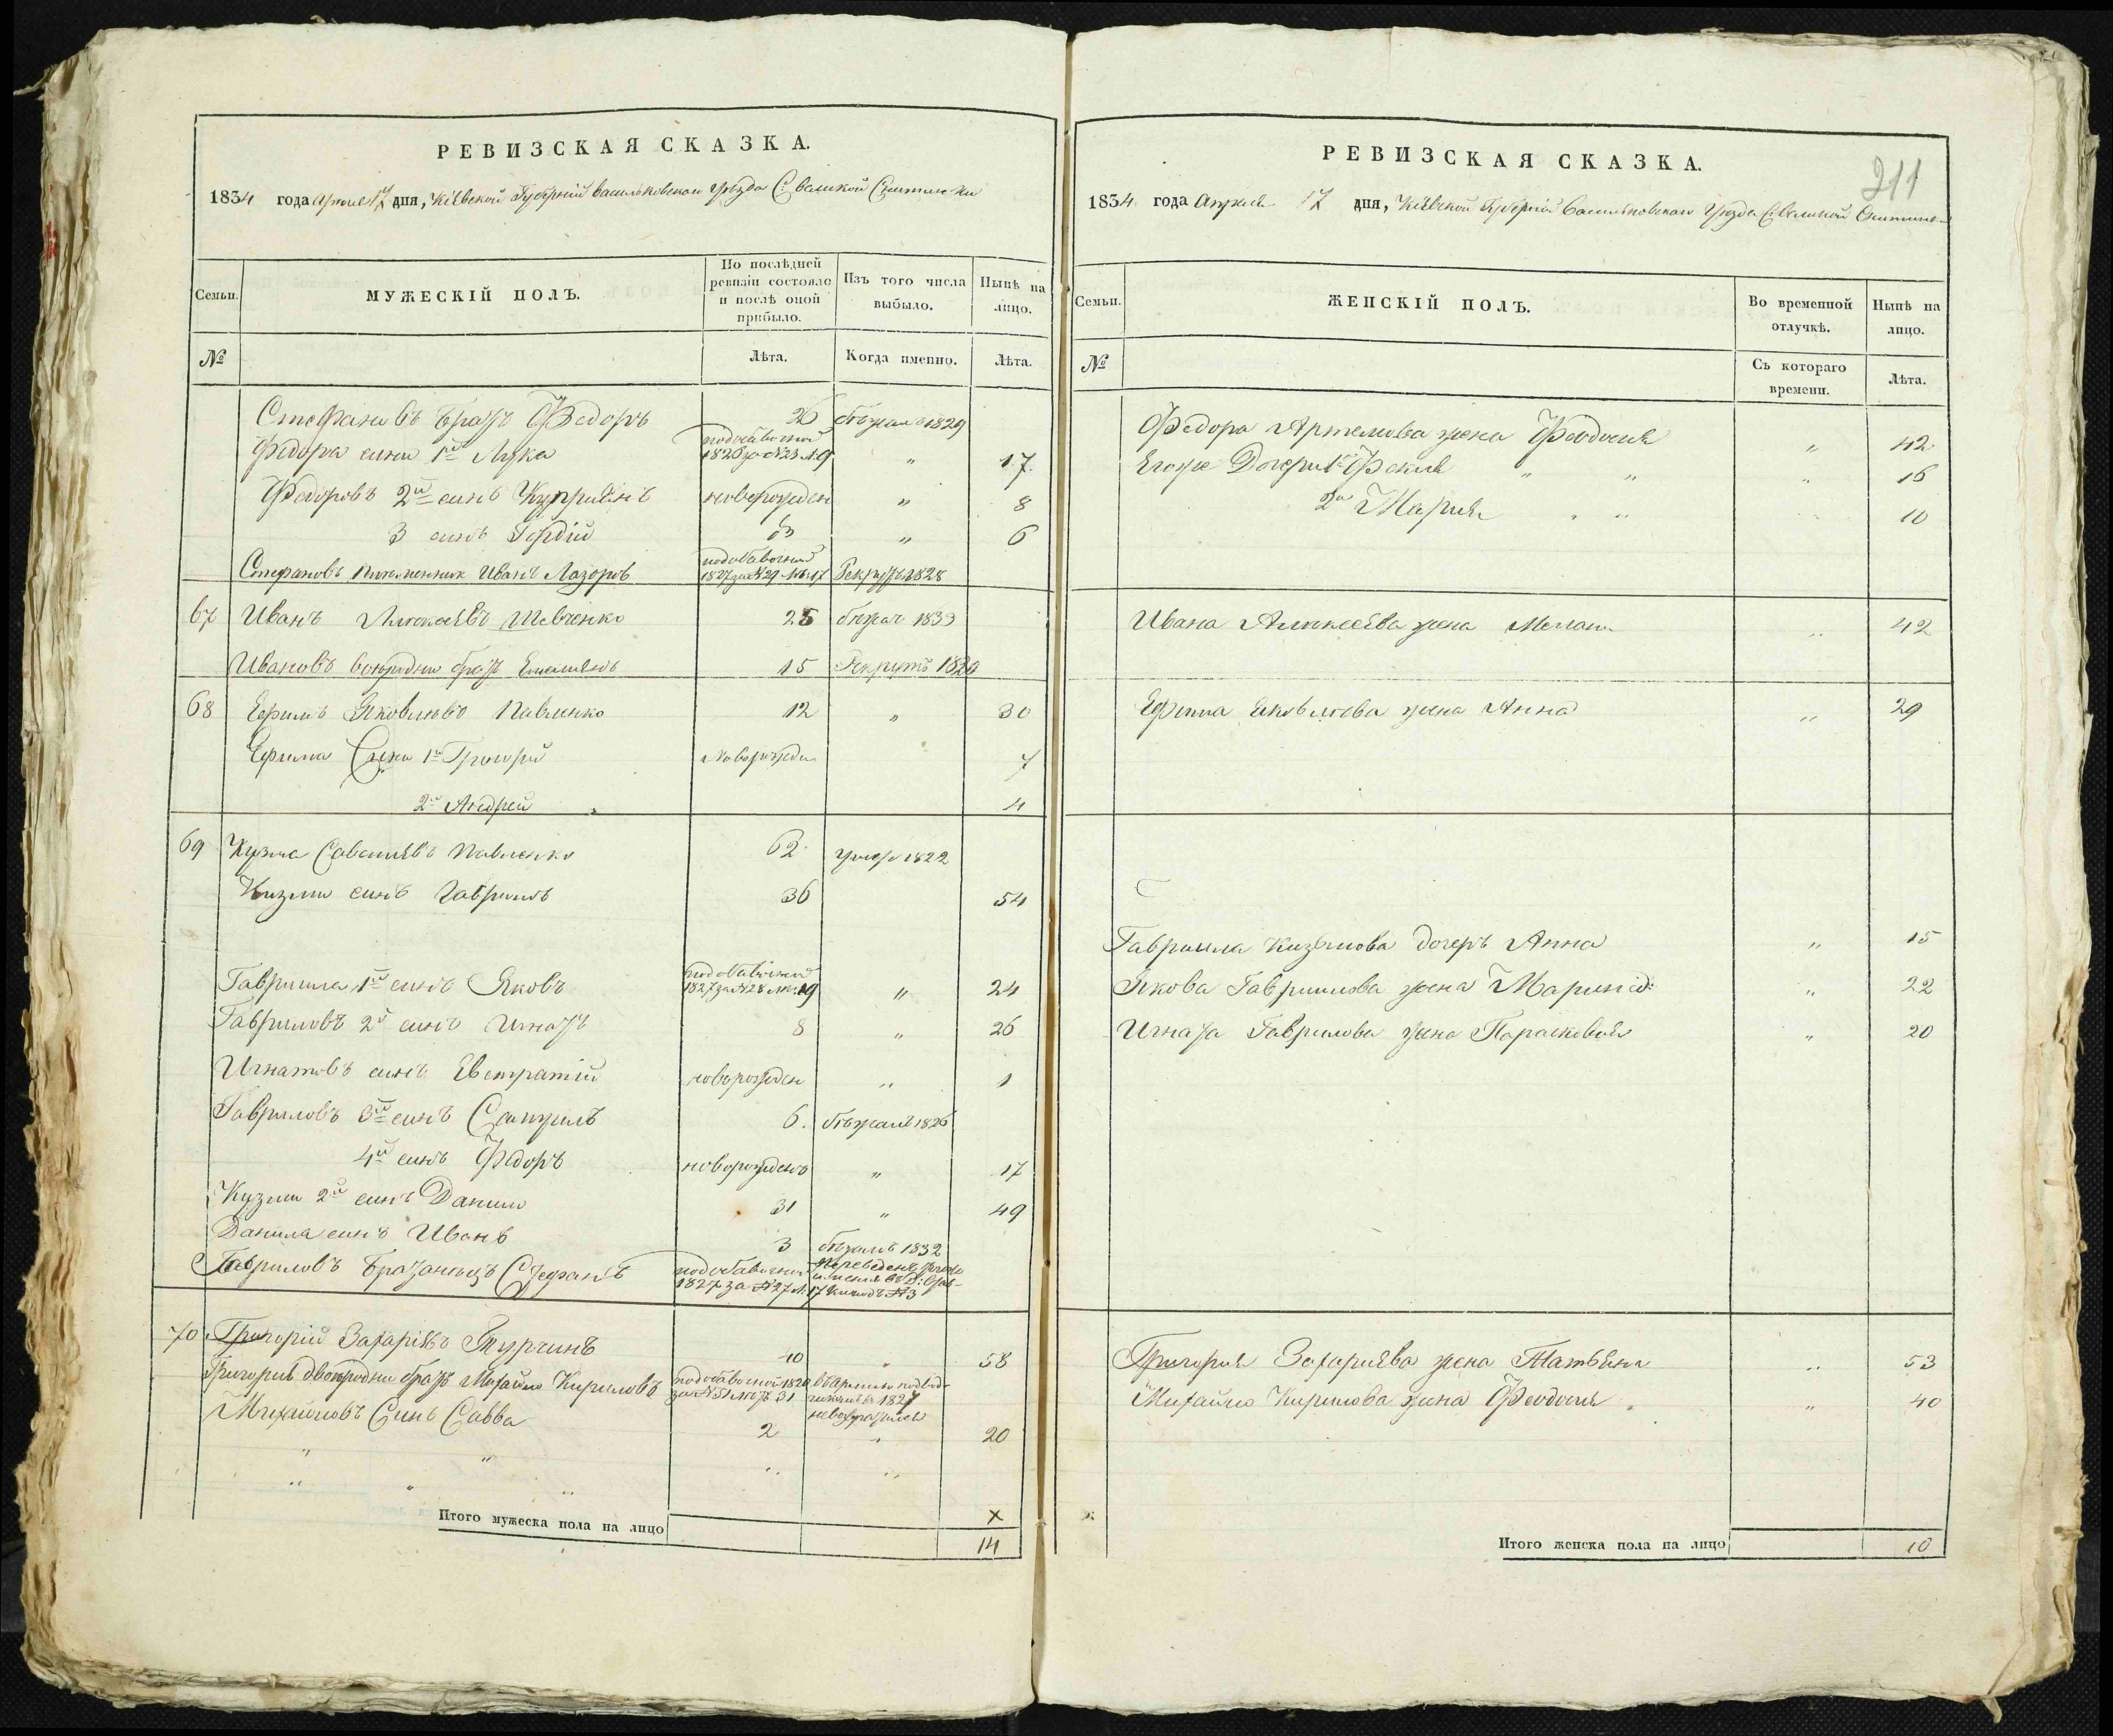 РЕВИЗСКАЯ СКАЗКА.
1834 года Апреля 17 дня, Кіевской Губерній Васильковскаго Уезда С: Великой
Семьи. МУЖЕСКІЙ ПОЛЪ. По послѣдней ревизіи состояло и послѣ оной прибыло. Изъ того числа выбыло. Нынѣ на лицо.
№ Лѣта. Когда именно. Лѣта.
Стефановъ братъ Федоръ 26 бѣжалъ 1829
Федора сини 1й Лука подобавочной 1826 за № 23 л. 9 „ 17.
Федоровъ 2й синъ Куприянъ новорожден „ 8
3 синъ Гордій „ 6
Стефановъ племенник Иванъ Лазоровъ подобавочной 1827 за № 29 17 Рекрутъ 1828
67 Иванъ Алексеевъ Шевченко 25 бежал 1833
Ивановъ воюродни братъ Емелиянъ 15 Рекрутъ 1820
68 Ефимъ Яковлевъ Павленко 12 „ 30
Ефима Сини 1й Григорій новорожден 7
2й Андрей 4
69 Кузма Савелиевъ Павленко 62 умер 1822
Кузми синъ Гаврилъ 36 54
Гавриила 1й синъ Яковъ подобавочной 1827 за № 28 19 „ 24
Гавриловъ 2й синъ Игнатъ 8 „ 26
Игнатовъ синъ Евстратій новорожден „ 1
Гавриловъ 3й синъ Самуилъ 6. бѣжалъ 1826
4й синъ Федоръ новорожденъ „ 17
Кузми 2й синъ Данило 31 „ 49
Данила синъ Иванъ 3 бежалъ 1832
Гавриловъ Братанецъ Стефанъ подобавочной 1827 за № 27 л. 17 Переведенъ
70 Григорій Захаріевъ Турчинъ 40 „ 58
Григорія двоюродни братъ Михайло Кириловъ подобавочной 1820 за № 51 31 1827
Михайловъ Синъ Савва 2 „ 20
Итого мужеска пола на лицо 14
РЕВИЗСКАЯ СКАЗКА.
211
1834 года Апреля 17 дня, Кіевской Губерніи Васильковскаго Уезда С: Великой
Семьи. ЖЕНСКІЙ ПОЛЪ. Во временной отлучкѣ. Нынѣ на лицо.
№ Съ котораго времени. Лѣта.
Федора Артемова жена Феодосия „ 42
Егоже Дочери 1я Фекла „ 16
2я Мария „ 10
Ивана Алексеева жена Мелания „ 42
Ефима Яковлева жена Анна „ 29
Гавриила Кузьмова дочерь Анна „ 15
Якова Гавриилова жена Марина „ 22
Игната Гаврилова жена Парасковия „ 20
Григория Захариева жена Татьяна „ 53
Михайло Кирилова жена Феодосия „ 40
Итого женска пола на лицо 10